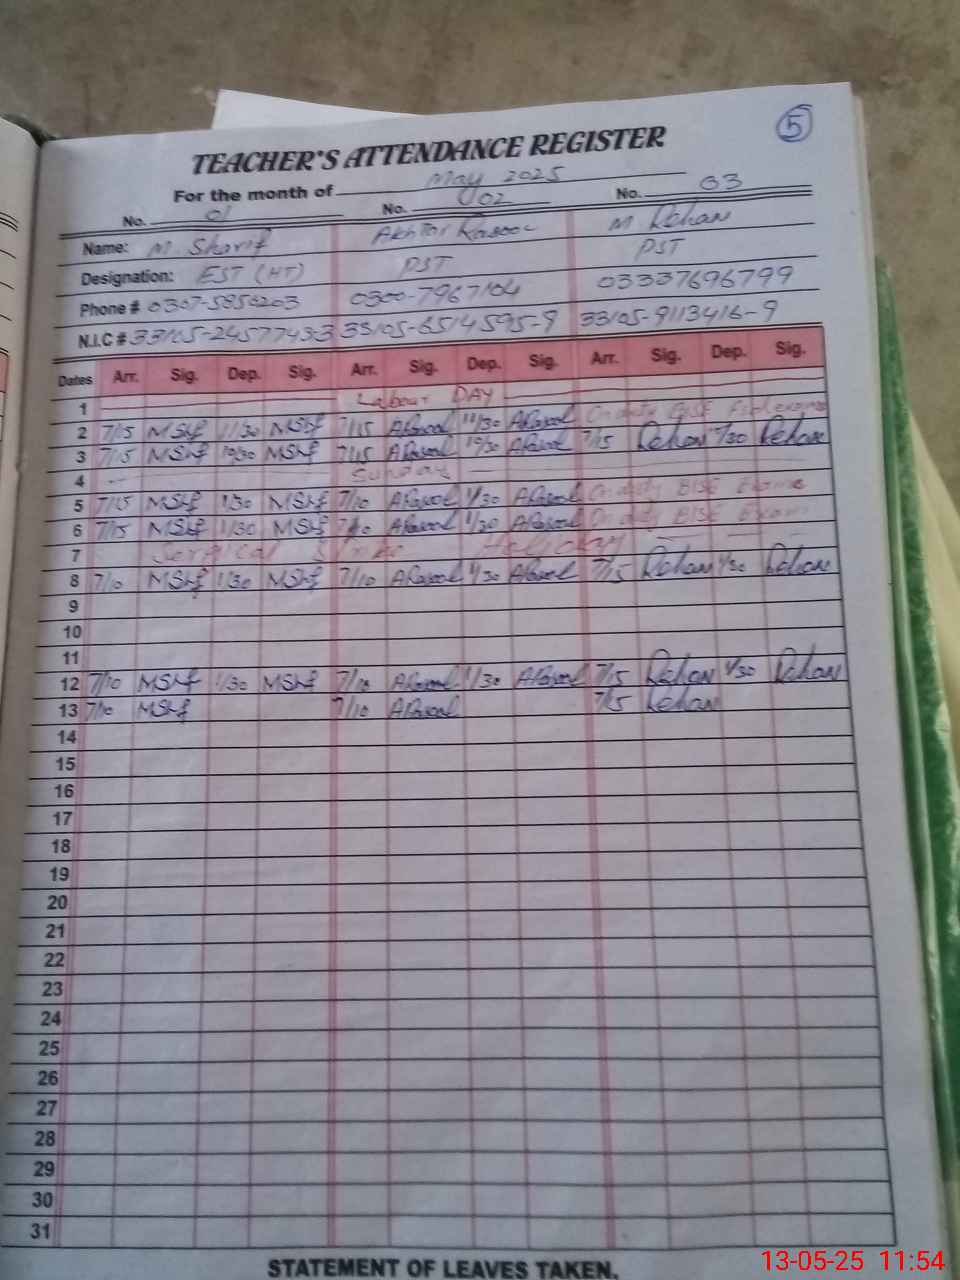 5
TEACHER'S ATTENDANCE REGISTER
For the month of May 2025
No. 01 No. 02 No. 03
Name: M. Sharif Akhtar Rasool M Rehan
Designation: EST (HT) PST PST
Phone # 0300-7967104 03337696799
N.I.C # 33105-2457743-3 33105-6514595-9 33105-9113416-9
Dates Arr. Sig. Dep. Sig. Arr. Sig. Dep. Sig. Arr. Sig. Dep. Sig.
1 Labour DAY
2 7/15 MShf 11/30 MShf 7/15 ARasool 11/30 ARasool On duty BISE
3 7/15 MShf 10/30 MShf 7/15 ARasool 10/30 ARasool 7/15 Rehan Rehan
4 Sunday
5 7/15 MShf 1/30 MShf 7/10 ARasool 1/30 ARasool On duty BISE Exams
6 7/15 MShf 1/30 MShf 7/10 ARasool 1/30 ARasool On duty BISE Exam
7 Holiday
8 7/10 MShf 1/30 MShf 7/10 ARasool 1/30 ARasool 7/15 Rehan 1/30 Rehan
9
10
11
12 7/10 MShf 1/30 MShf 7/10 ARasool 1/30 ARasool 7/15 Rehan 1/30 Rehan
13 7/10 MShf 7/10 ARasool 7/15 Rehan
14
15
16
17
18
19
20
21
22
23
24
25
26
27
28
29
30
31
STATEMENT OF LEAVES TAKEN.
13-05-25 11:54